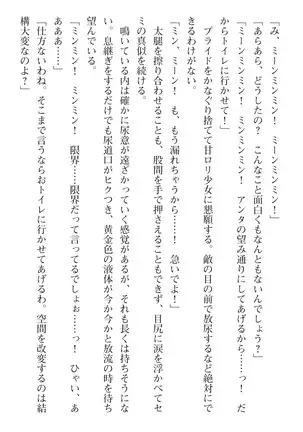 「み、ミーンミンミン！　ミーンミンミン！」
「あらあら、どうしたの？　こんなこと面白くもなんともないんでしょう？」
「ミーンミンミン！　アンタの望み通りにしてあげるから……っ！　だ
からトイレに行かせて！」
　プライドをかなぐり捨てて甘ロリ少女に懇願する。敵の目の前で放尿するなど絶対にで
きるわけがない。
「ミン、ミーン！　も、もう漏れちゃうから……！　急いでよ！」
　太腿を擦り合わせることも、股間を手で押さえることもできず、目尻に涙を浮かべてセ
ミの真似を続ける。
　鳴いている内は確かに尿意が遠ざかっていく感覚があるが、それも長くは持ちそうにな
い。息継ぎをするだけでも尿道口がヒクつき、黄金色の液体が今か今かと放流の時を待ち
望んでいる。
「ミンミン！　ミンミン！　限界……限界だって言ってるでしょぉ……っ！　ひゃい、あ
あああ……っ」
「仕方ないわね。そこまで言うならおトイレに行かせてあげるわ。空間を改変するのは結
構大変なのよ？」